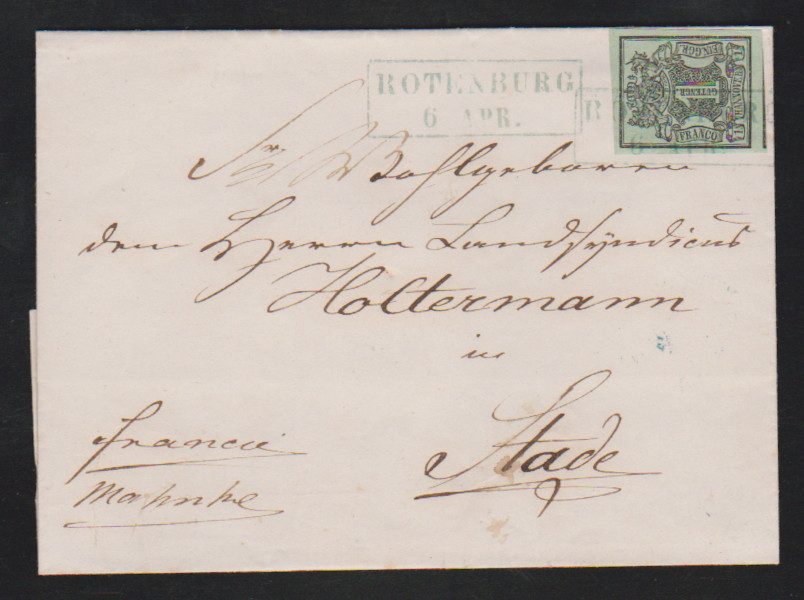 ROTENBURG
6 APR.
HANNOVER
EIN GGR.
1 GUTENGR. 1
FRANCO
Sr Wohlgeboren
dem Herrn Landsyndicus
Holtermann
in
Stade
franco
Mahnke